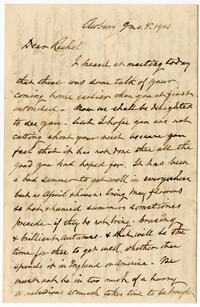 Dear Rachel
I heard at meeting today
that there was some talk of your
coming home earlier than you at first
intended. Now we shall be delighted
to see you. but I hope you are not
cutting short your visit because you
feel that it has not done thee all the
good you had hoped for. It has been
a bad summer to get well in everywhere
but as April showers bring May flowers
so hot & humid summers sometimes
precede - if they do not bring - bracing
& brilliant autumns. & that will be the
time for thee to get well, whether thee
spends it in England or America. We
must not be in too much of a hurry
a rebellious stomach takes time to be